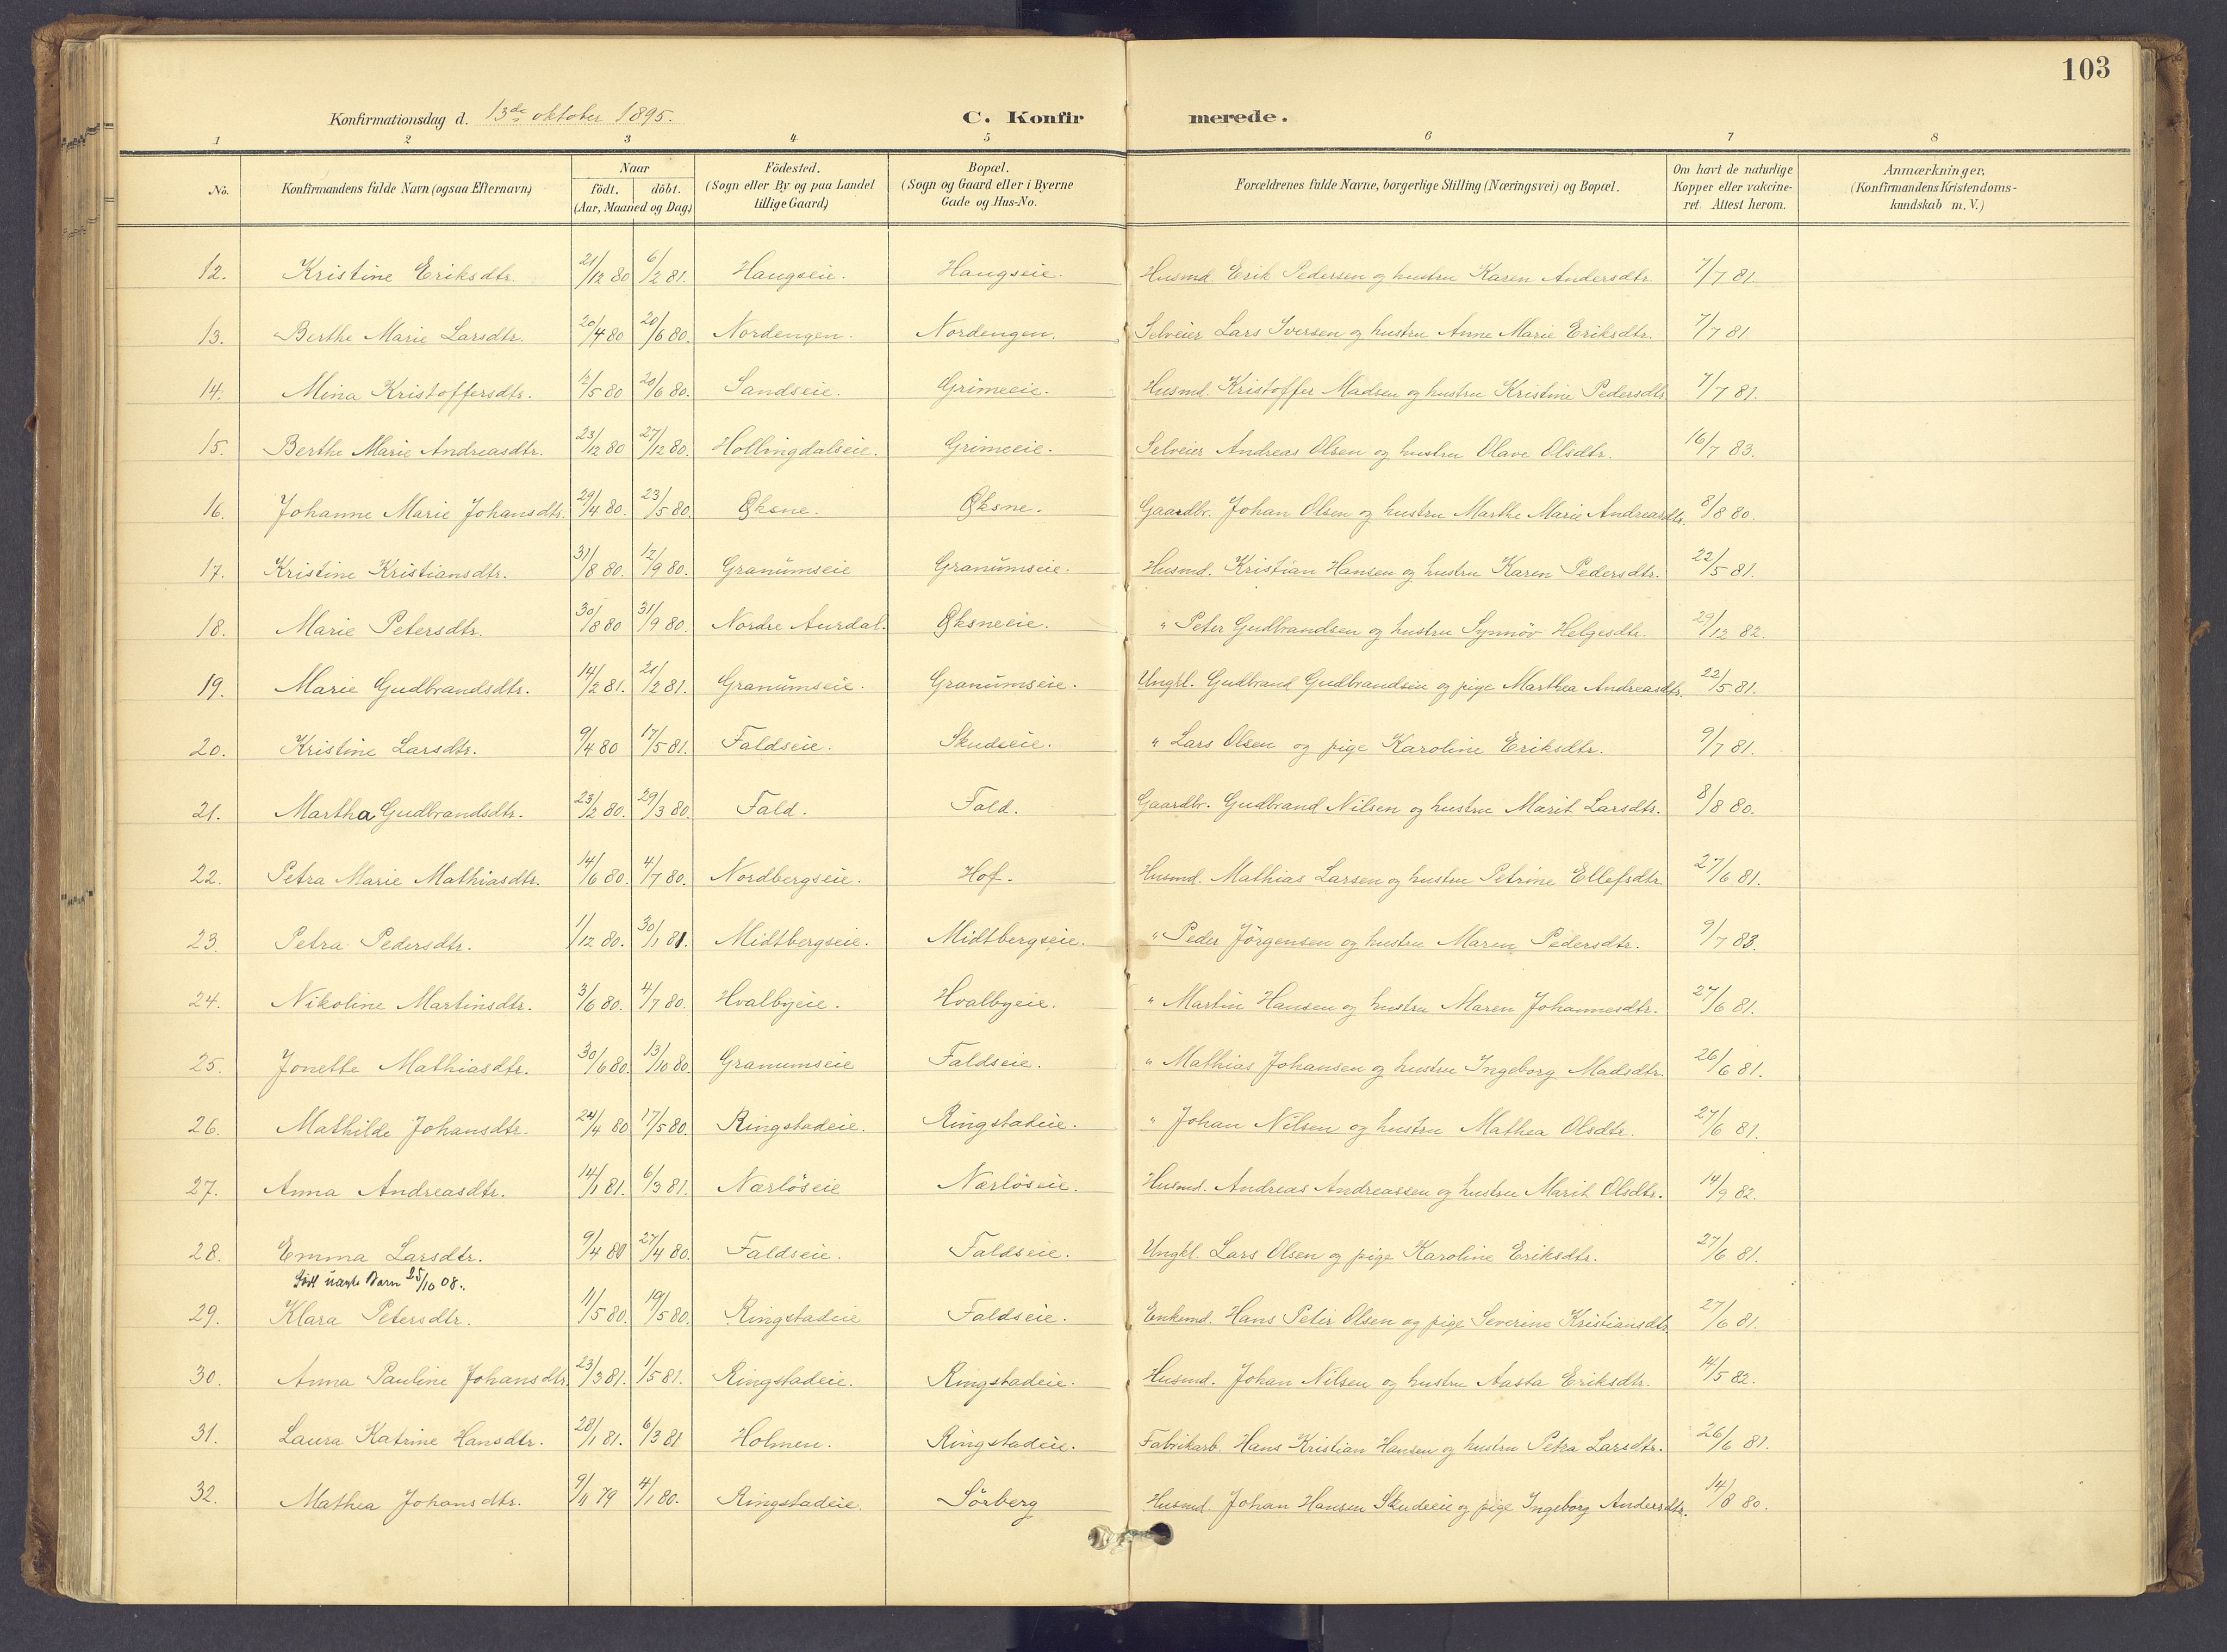 103
Konfirmationsdag d. 13de oktober 1895. C. Konfirmerede.
1 2 3 4 5 6 7 8
No. Konfirmandens fulde Navn (ogsaa Efternavn) Naar födt. döbt. (Aar, Maaned og Dag) Födested. (Sogn eller By og paa Landet tillige Gaard) Bopæl. (Sogn og Gaard eller i Byerne Gade og Hus-No. Forældrenes fulde Navne, borgerlige Stilling (Næringsvei) og Bopæl. Om havt de naturlige Kopper eller vakcineret. Attest herom. Anmærkninger, (Konfirmandens Kristendomskundskab m. V.)
12. Kristine Eriksdtr. 21/12 80 6/2 81. Haugseie. Haugseie. Husmd. Erik Pedersen og hustru Karen Andersdtr. 7/7 81.
13. Berthe Marie Larsdtr. 20/4 80 20/6 80. Nordengen. Nordengen. Selveier Lars Iversen og hustru Anne Marie Eriksdtr. 7/7 81
14. Mina Kristoffersdtr. 12/5 80 20/6 80. Sandseie. Grimeeie. Husmd. Kristoffer Madsen og hustru Kristine Pedersdtr 7/7 81.
15. Berthe Marie Andreasdtr. 23/12 80 27/12 80. Hollingdalseie. Grimeeie. Selveier Andreas Olsen og hustru Olave Olsdtr. 16/7 83.
16. Johanne Marie Johansdtr. 29/4 80. 23/5 80 Øksne. Øksne. Gaardbr. Johan Olsen og hustru Marthe Marie Andreasdtr. 8/8 80.
17. Kristine Kristiansdtr. 31/8 80. 12/9 80. Granumseie Granumseie. Husmd. Kristian Hansen og hustru Karen Pedersdtr. 22/5 81.
18. Marie Petersdtr. 30/8 80 31/9 80. Nordre Aurdal. Øksneeie. " Peter Gudbrandsen og hustru Synnöv Helgesdtr. 29/12 82.
19. Marie Gudbrandsdtr. 14/2 81. 21/2 81. Granumseie. Granumseie. Ungkl. Gudbrand Gudbrandsen og pige Marthea Andreasdtr. 22/5 81.
20. Kristine Larsdtr. 9/4 80 17/5 81. Faldseie. Skudeeie. " Lars Olsen og pige Karoline Eriksdtr. 9/7 81.
21. Martha Gudbrandsdtr. 23/2 80. 29/3 80. Fald. Fald. Gaardbr. Gudbrand Nilsen og hustru Marit Larsdtr. 8/8 80.
22. Petra Marie Mathiasdtr. 14/6 80. 4/7 80. Nordbergseie. Hof. Husmd. Mathias Larsen og hustru Petrine Ellefsdtr. 27/6 81.
23. Petra Pedersdtr. 1/12 80. 30/1 81. Midtbergseie. Midtbergseie. " Peder Jörgensen og hustru Maren Pedersdtr. 9/7 83.
24. Nikoline Martinsdtr. 3/6 80. 4/7 80. Hvalbyeie. Hvalbyeie. " Martin Hansen og hustru Maren Johannesdtr. 27/6 81.
25. Jonette Mathiasdtr. 30/6 80. 13/10 80. Granumseie Faldseie. " Mathias Johansen og hustru Ingeborg Madsdtr. 26/6 81.
26. Mathilde Johansdtr. 24/4 80 17/5 80. Ringstadeie. Ringstadeie. " Johan Nilsen og hustru Mathea Olsdtr. 27/6 81.
27. Anna Andreasdtr. 14/1 81. 6/3 81. Nærlöseie Nærlöseie. Husmd. Andreas Andreassen og hustru Marit Olsdtr. 14/9 82.
28. Emma Larsdtr. 9/4 80 27/4 80. Faldseie. Faldseie. Ungkl. Lars Olsen og pige Karoline Eriksdtr. 27/6 81.
Født uægte Barn 25/10 08.
29. Klara Petersdtr. 11/5 80. 19/5 80. Ringstadeie Faldseie. Enkemd. Hans Peter Olsen og pige Severine Kristiansdtr. 27/6 81.
30. Anna Pauline Johansdtr. 23/3 81. 1/5 81. Ringstadeie. Ringstadeie. Husmd. Johan Nilsen og hustru Aasta Eriksdtr. 14/5 82.
31. Laura Katrine Hansdtr. 28/1 81. 6/3 81 Holmen. Ringstadeie. Fabrikarb. Hans Kristian Hansen og hustru Petra Larsdtr. 26/6 81.
32. Mathea Johansdtr. 9/11 79 4/1 80. Ringstadeie. Sörberg Husmd. Johan Hansen Skudeeie og pige Ingeborg Andersdtr. 14/8 80.